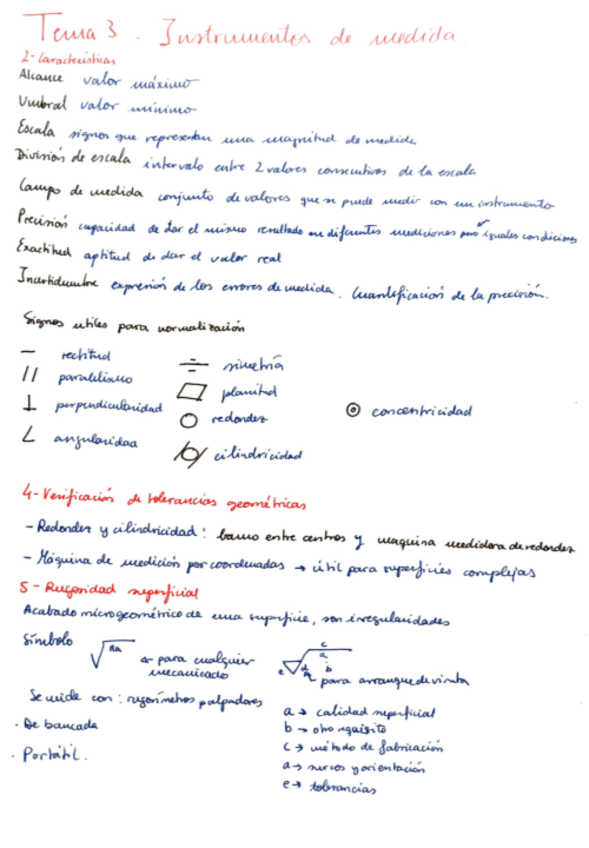 Tema 3. Instrumentos de medida
2-Características
Alcance valor máximo
Umbral valor mínimo
Escala signos que representan una magnitud de medida
División de escala intervalo entre 2 valores consecutivos de la escala
Campo de medida conjunto de valores que se puede medir con un instrumento
Precisión capacidad de dar el mismo resultado en diferentes mediciones pero iguales condiciones
Exactitud aptitud de dar el valor real
Incertidumbre expresión de los errores de medida. Cuantificación de la precisión.
Signos utiles para normalización
— rectitud
// paralelismo
⊥ perpendicularidad
∠ angularidad
simetría
planitud
redondez
cilindricidad
concentricidad
4-Verificación de tolerancias geométricas
- Redondez y cilindricidad: banco entre centros y maquina medidora de redondez
- Máquina de medición por coordenadas → útil para superficies complejas
5- Rugosidad superficial
Acabado microgeométrico de una superficie, son irregularidades
Símbolo
Ra
← para cualquier
mecanizado
c
a
e d b
para arranque de viruta
Se mide con: rugosímetros palpadores
· De bancada
· Portátil.
a → calidad superficial
b → otro requisito
c → método de fabricación
d → surcos y orientación
e → tolerancias